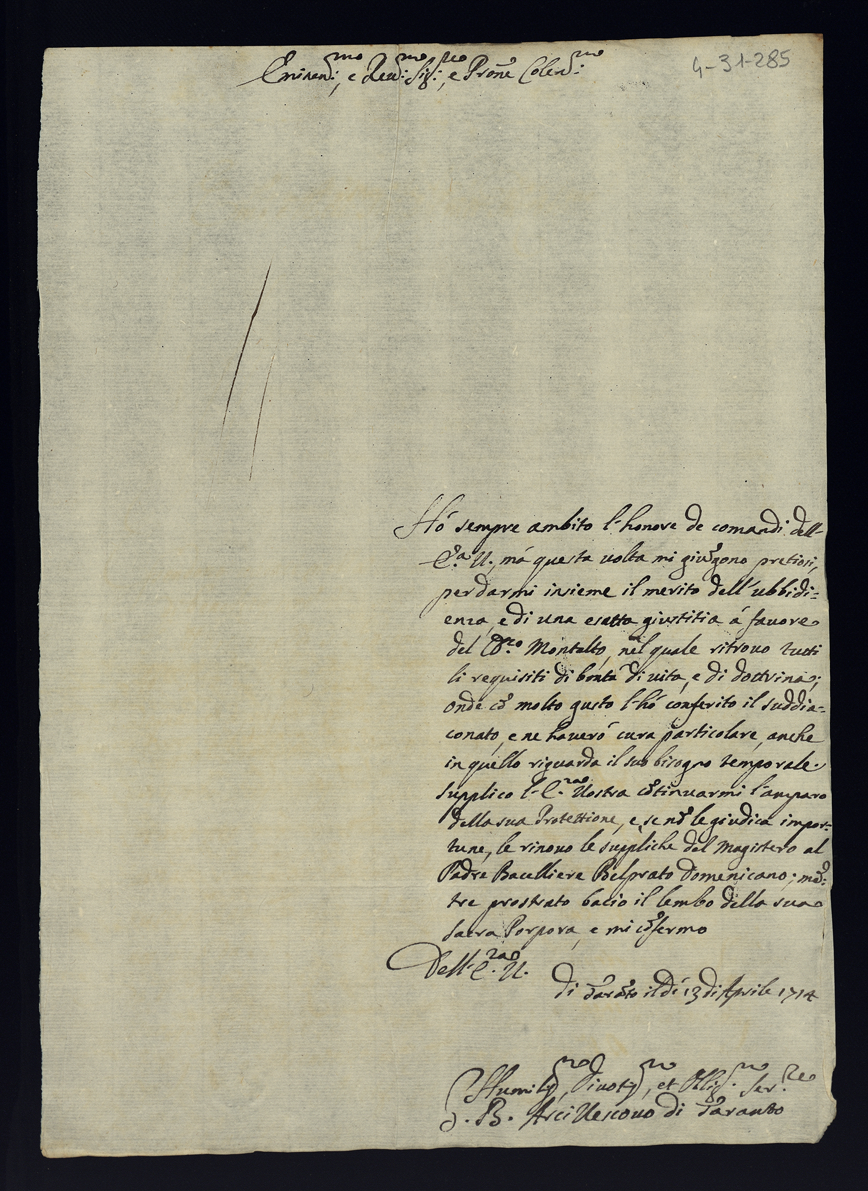 4-31-285
Eminen:mo, e Reu:mo Sig:re, e Prone Colend:mo
Hó sempre ambito l'honore de comandi dell'
E:a V., má questa uolta mi giũgono pretiosi,
per darmi insieme il merito dell'ubbidi=
enza, e di una esatta giustitia á fauore
del Montalto, nel quale ritrouo tutti
li requisiti di bontá di uita, e di dottrina;
onde cõ molto gusto l'hó conferito il suddia=
conato, e ne hauerò cura particolare, anche
in quello riguarda il suo bisogno temporale.
Supplico l'E:za Vostra cõtinuarmi l'amparo
della sua Protettione, e, se nõ le giudica impor=
tune, le rinouo le suppliche del Magistero al
Padre Bacelliere Belprato Domenicano; mẽ=
tre prostrato bacio il lembo della sua
sacra Porpora, e mi cõfermo
Dell'E:za V.
Di Tarãto il dí 13 di Aprile 1714
Humilmo, Diuotmo, et Oblig:mo Ser:re
G. B. Arciuescouo di Taranto